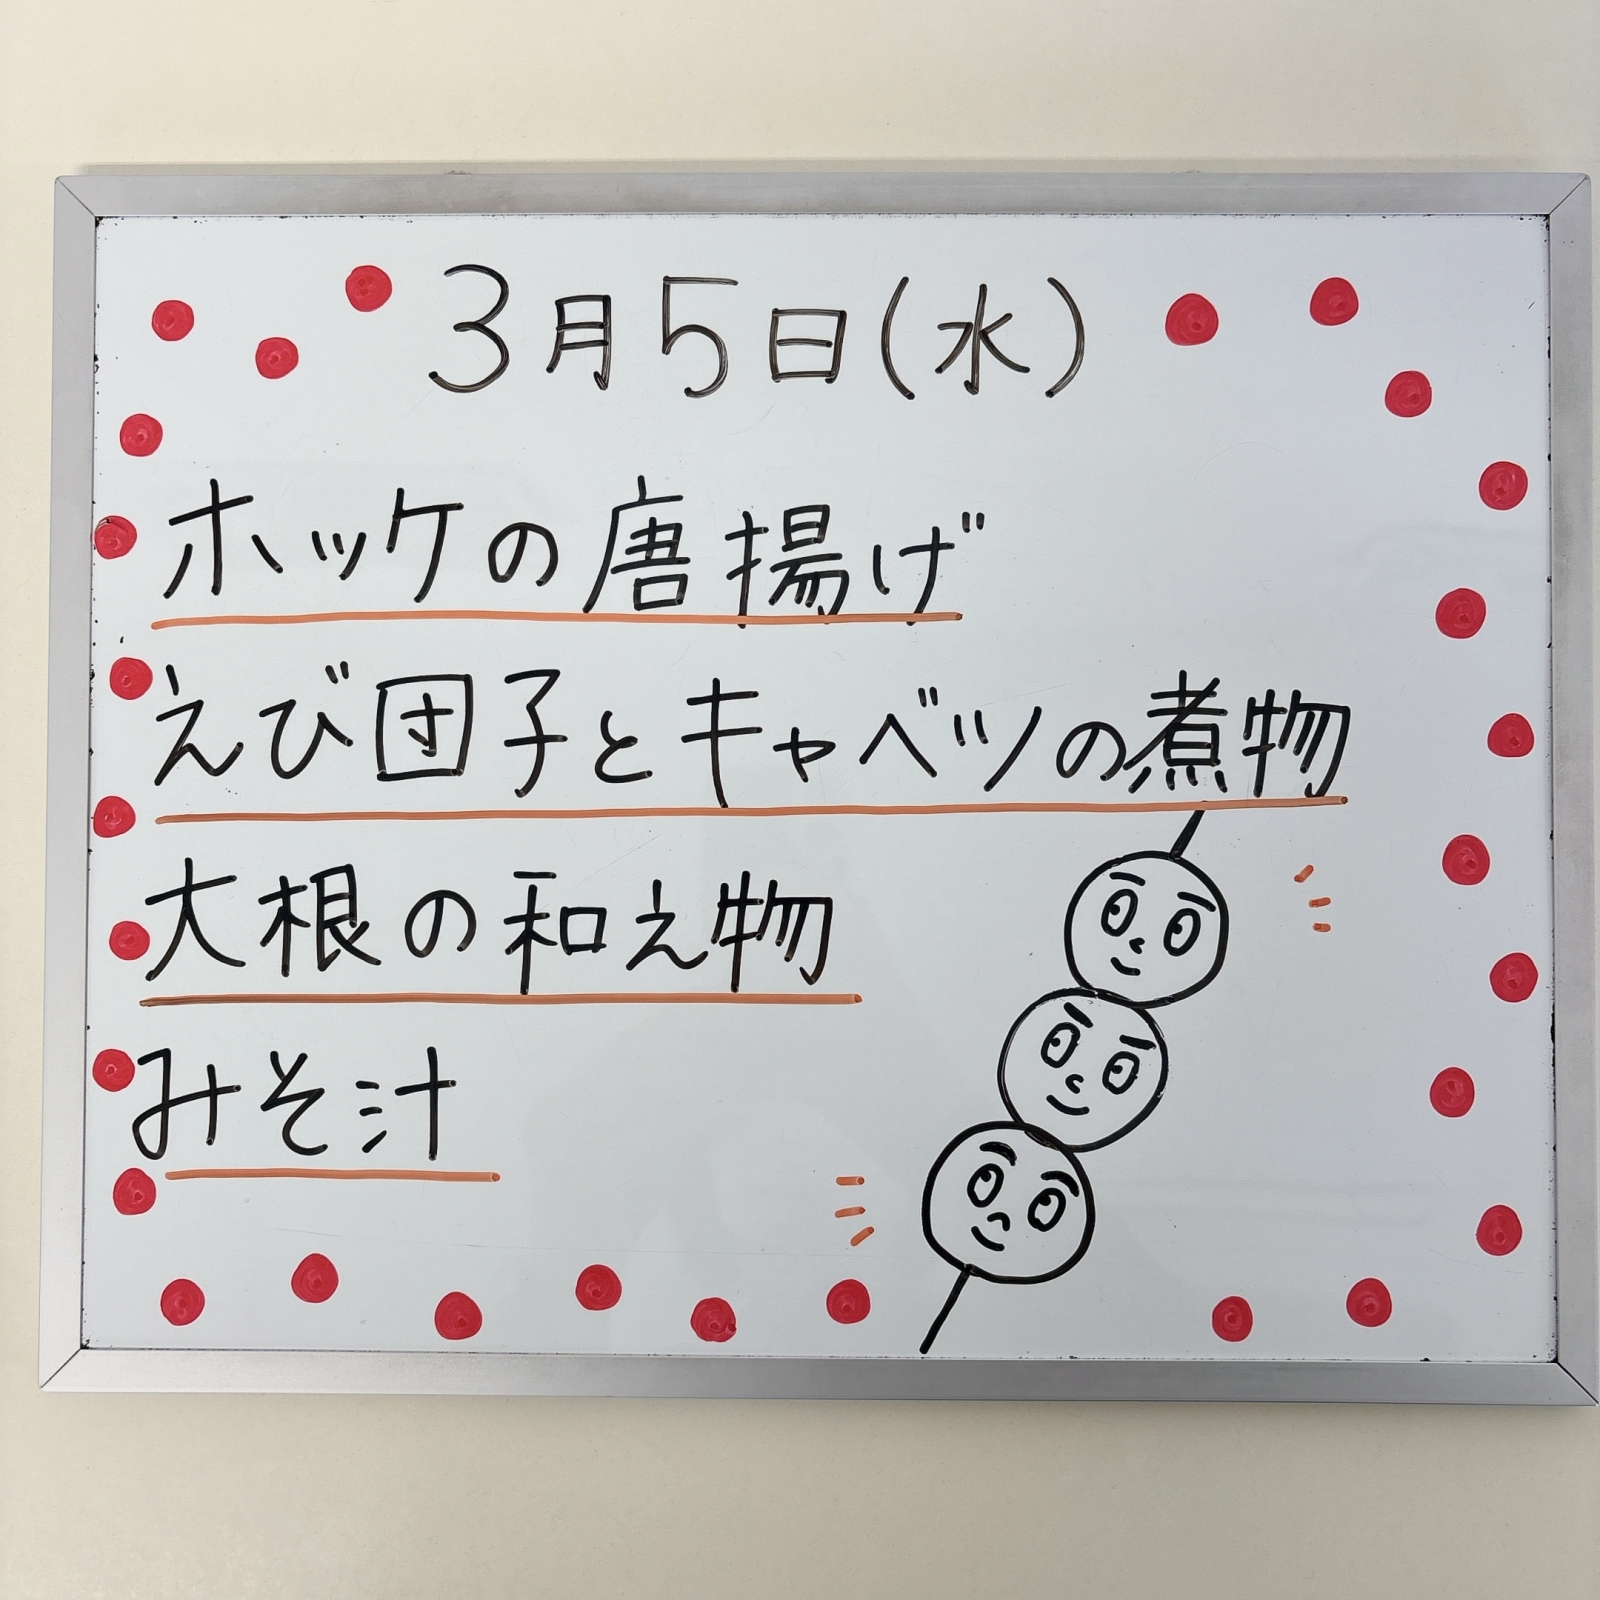 3月5日(水)
ホッケの唐揚げ
えび団子とキャベツの煮物
大根の和え物
みそ汁